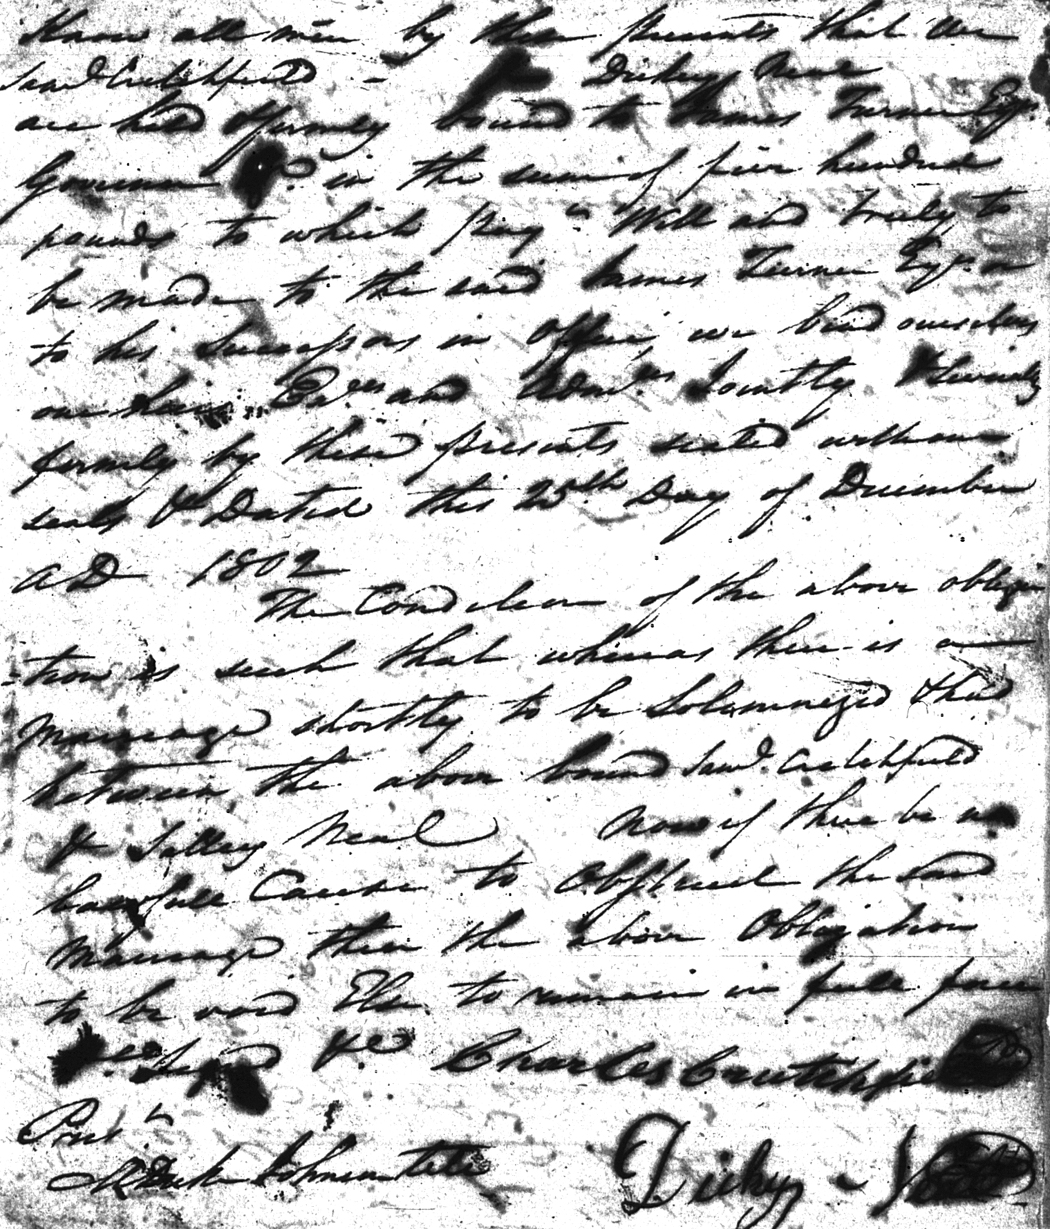 Know all men by these presents that we
Saml Crutchfield - Dickey Neal
are held & firmly bound to James Turner Esqr.
Governor &c. in the sum of five hundred
pounds to which pay Will and truly to
be made to the said James Turner Esqr. or
to his Successors in office, we bind ourselves
our heirs Exrs and Admrs Jointly & severely
firmly by these presents sealed with our
seals & Dated this 25th Day of December
AD 1802
The Condition of the above obliga
-tion is such that whereas there is a
marriage shortly to be Solemnezed & had
between the above bound Saml. Crutchfield
& Silley Neal Now if there be no
lawfull Cause to Obstruct the said
marriage then the above Obligation
to be void Else to remain in full force
Signd &c Charles Crutchfield
Prest
Duke Johnson teste Dickey Neal